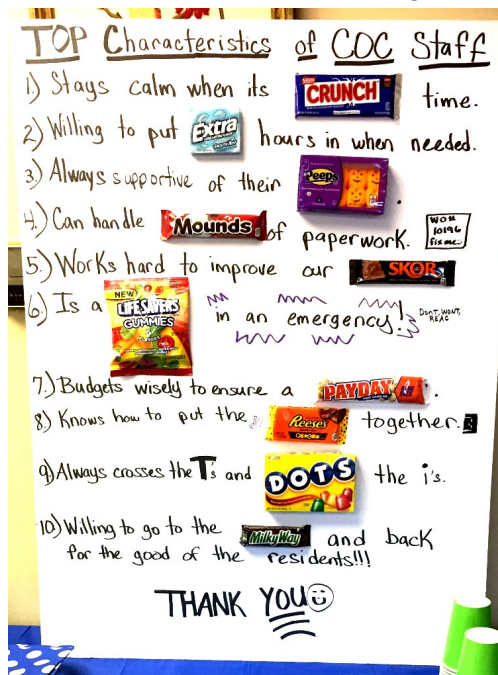 TOP Characteristics of COC Staff
1) Stays calm when its Nestle CRUNCH time.
2) Willing to put Extra hours in when needed.
3) Always supportive of their Peeps.
4.) Can handle Mounds of paperwork.
WO#
10196
fix me
5.) Works hard to improve our SKOR
6.) Is a NEW LIFE SAVERS GUMMIES in an emergency!
DON'T WONT,
REAC
7.) Budgets wisely to ensure a PAYDAY.
8.) Knows how to put the Reese's together.
9) Always crosses the T's and DOTS the i's.
10) Willing to go to the Milky Way and back
for the good of the residents!!!
THANK YOU